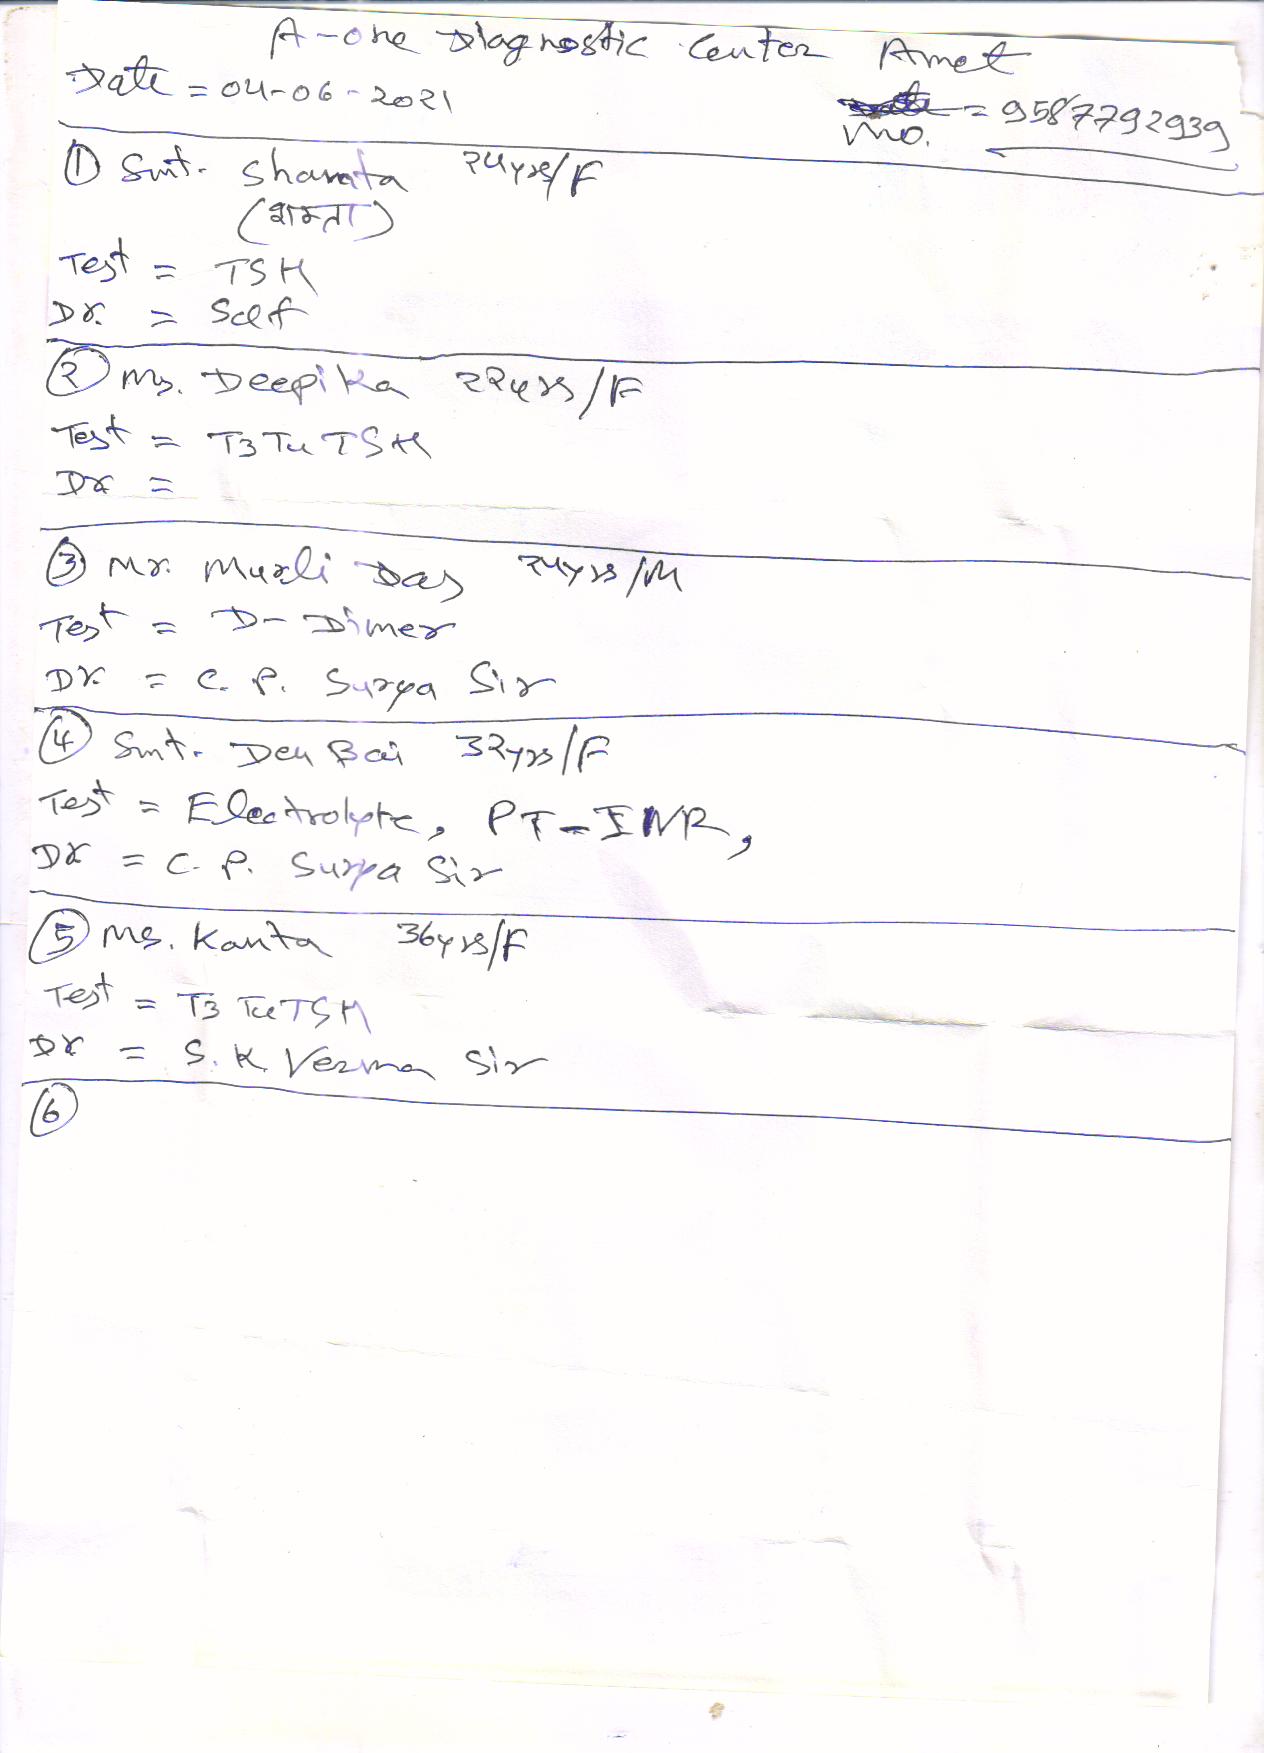 A-one Diagnostic Center Amet
Date = 04-06-2021
Mo. = 9587792939
① Smt. Shamta 24yrs/F
(शामता)
Test = TSH
Dr. = Self
② Ms. Deepika 22yrs/F
Test = T3 T4 TSH
Dr =
③ Mr. Murli Das 24yrs/M
Test = D-Dimer
Dr. = C. P. Surya Sir
④ Smt. Deu Bai 32yrs/F
Test = Electrolyte, PT-INR,
Dr = C. P. Surya Sir
⑤ Ms. Kanta 36yrs/F
Test = T3 T4 TSH
Dr = S. K. Verma Sir
⑥